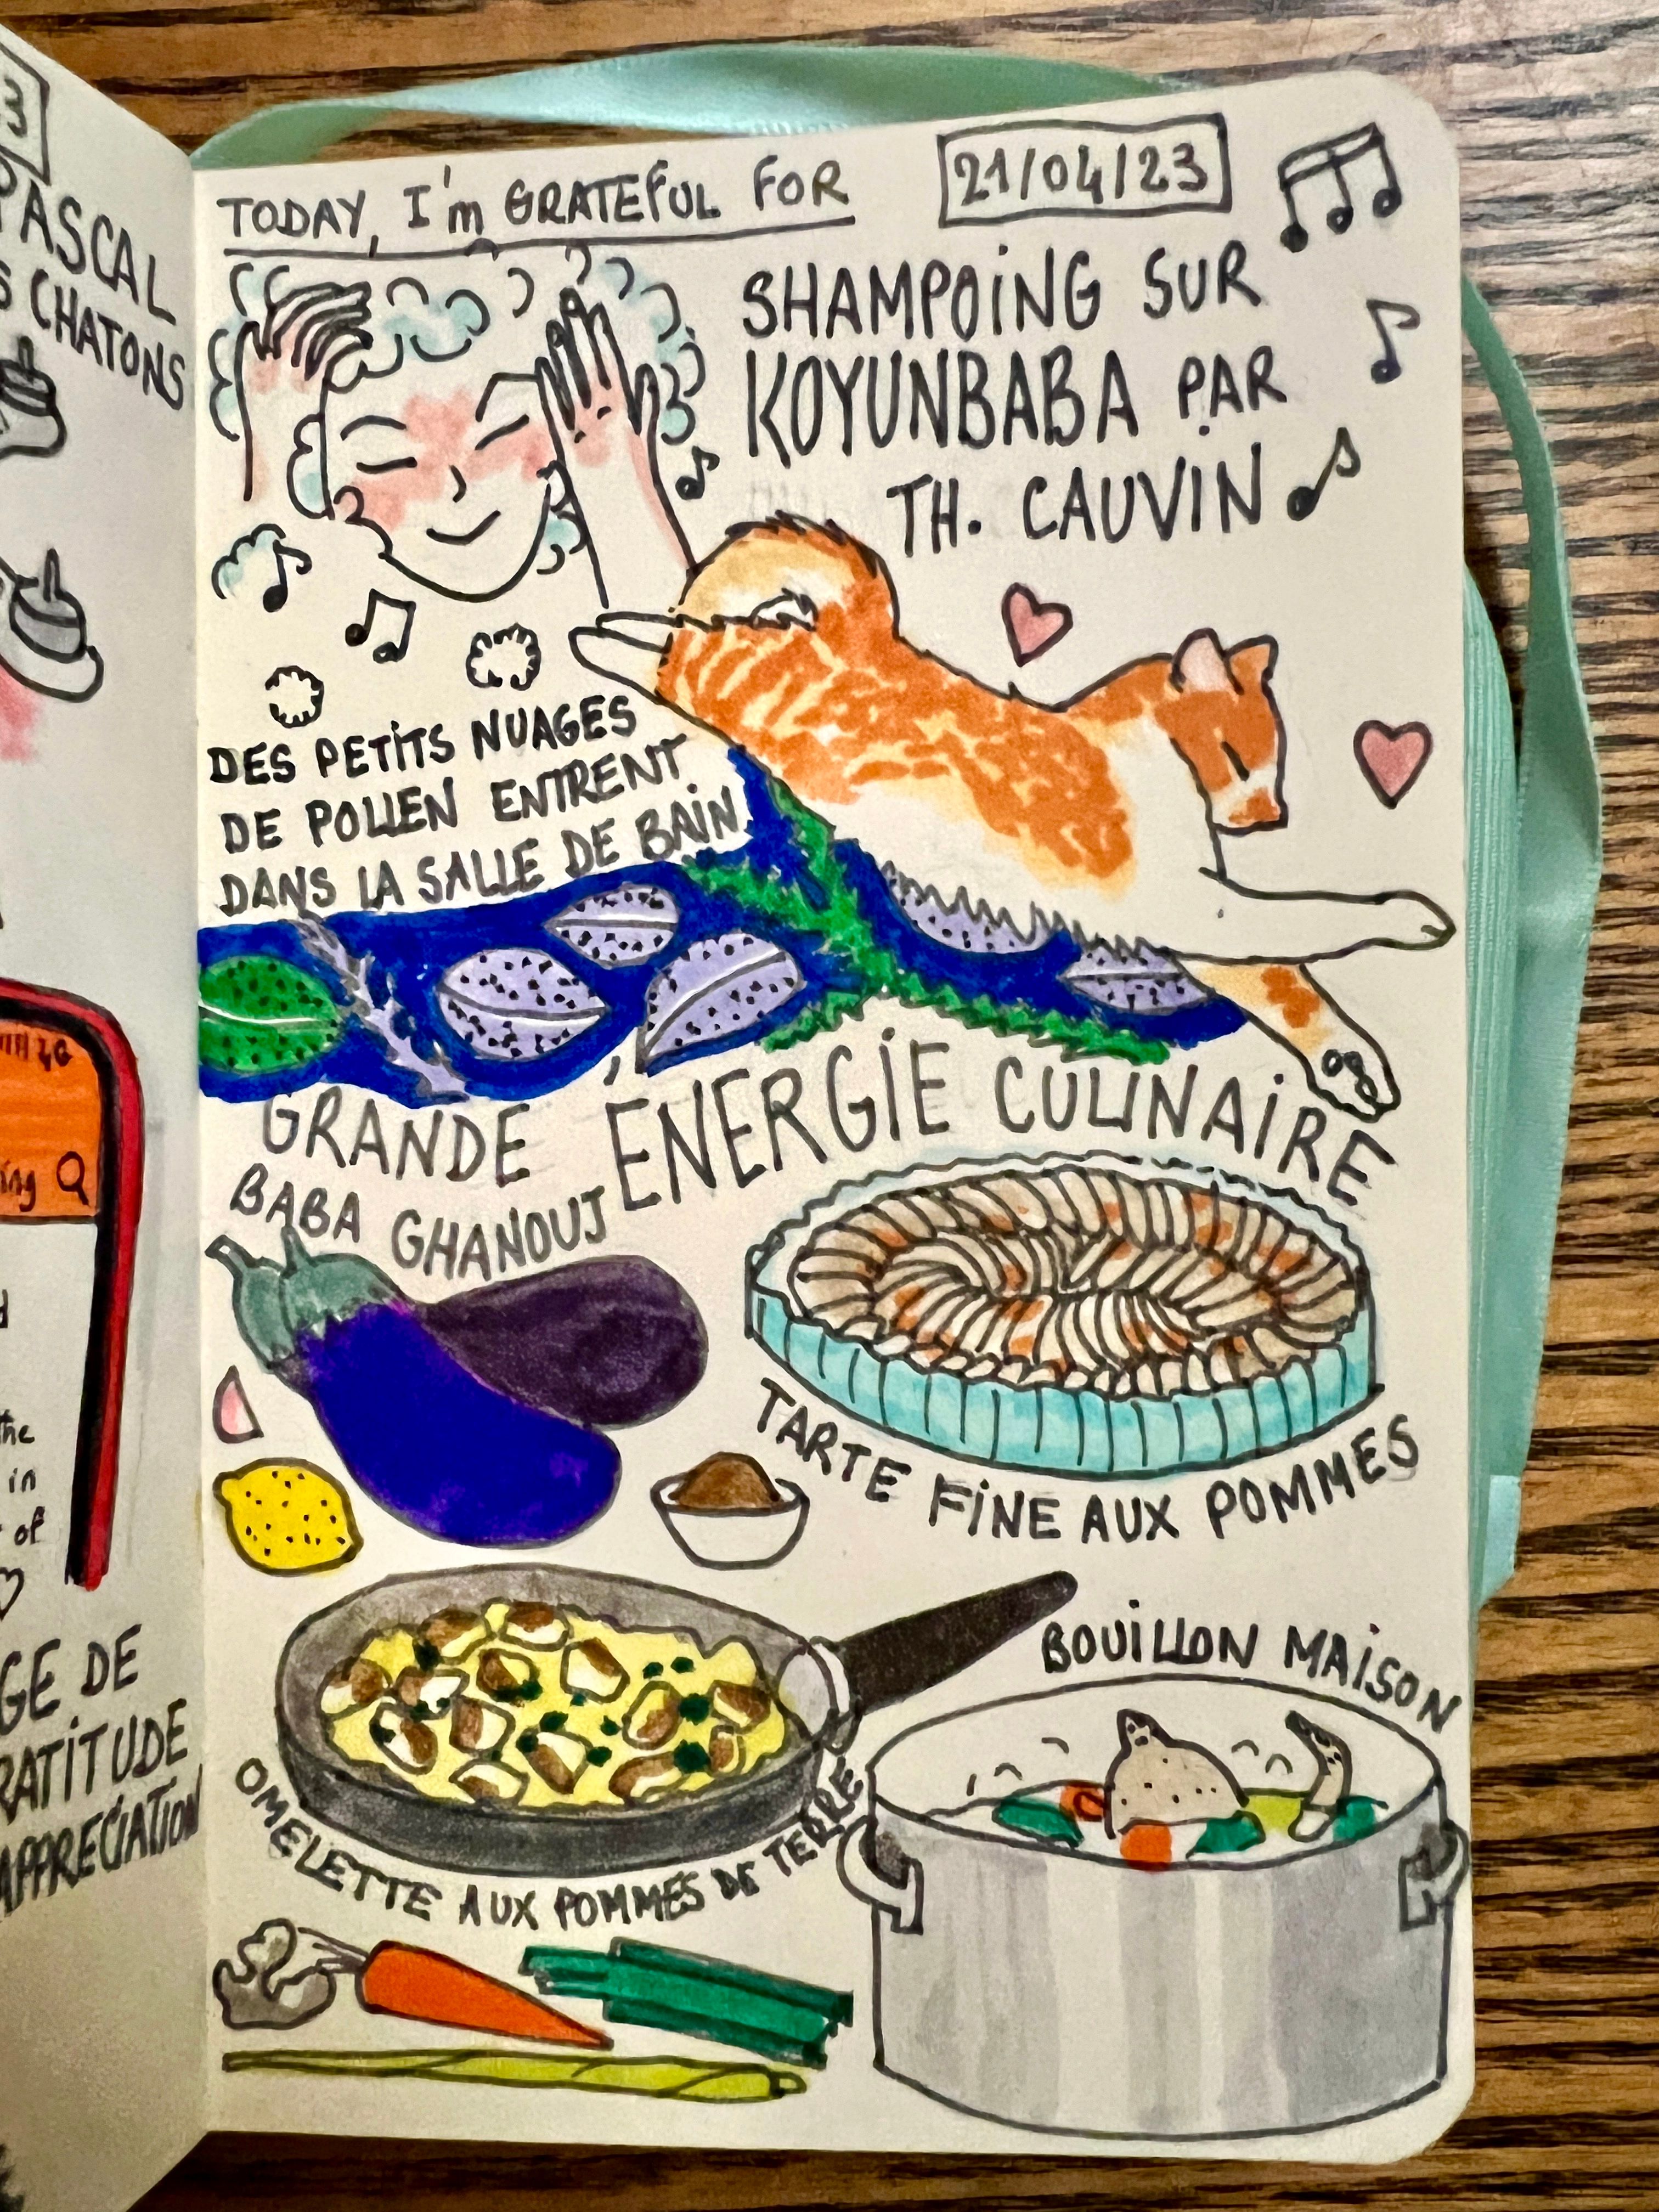 3
PASCAL
S CHATONS
ing
the
in
of
GE DE
RATITUDE
APPRECIATION
TODAY, I'm GRATEFUL FOR
21/04/23
SHAMPOING SUR
KOYUNBABA PAR
TH. CAUVIN
DES PETITS NUAGES
DE POLLEN ENTRENT
DANS LA SALLE DE BAIN
GRANDE ÉNERGIE CULINAIRE
BABA GHANOUJ
TARTE FINE AUX POMMES
BOUILLON MAISON
OMELETTE AUX POMMES DE TERRE